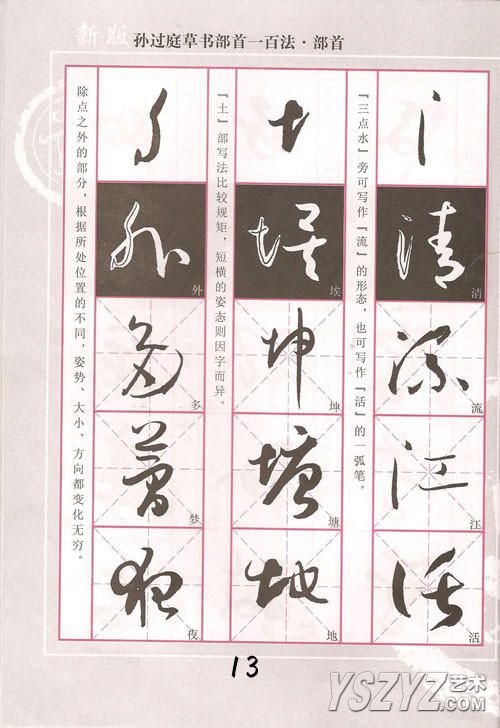 新版 孙过庭草书部首一百法·部首
『三点水』旁可写作『流』的形态，也可写作『活』的一弧笔。
清
流
江
活
『土』部写法比较规矩，短横的姿态则因字而异。
埃
坤
塘
地
除点之外的部分，根据所处位置的不同，姿势、大小、方向都变化无穷。
外
多
梦
夜
13
YSZYZ艺术
.com